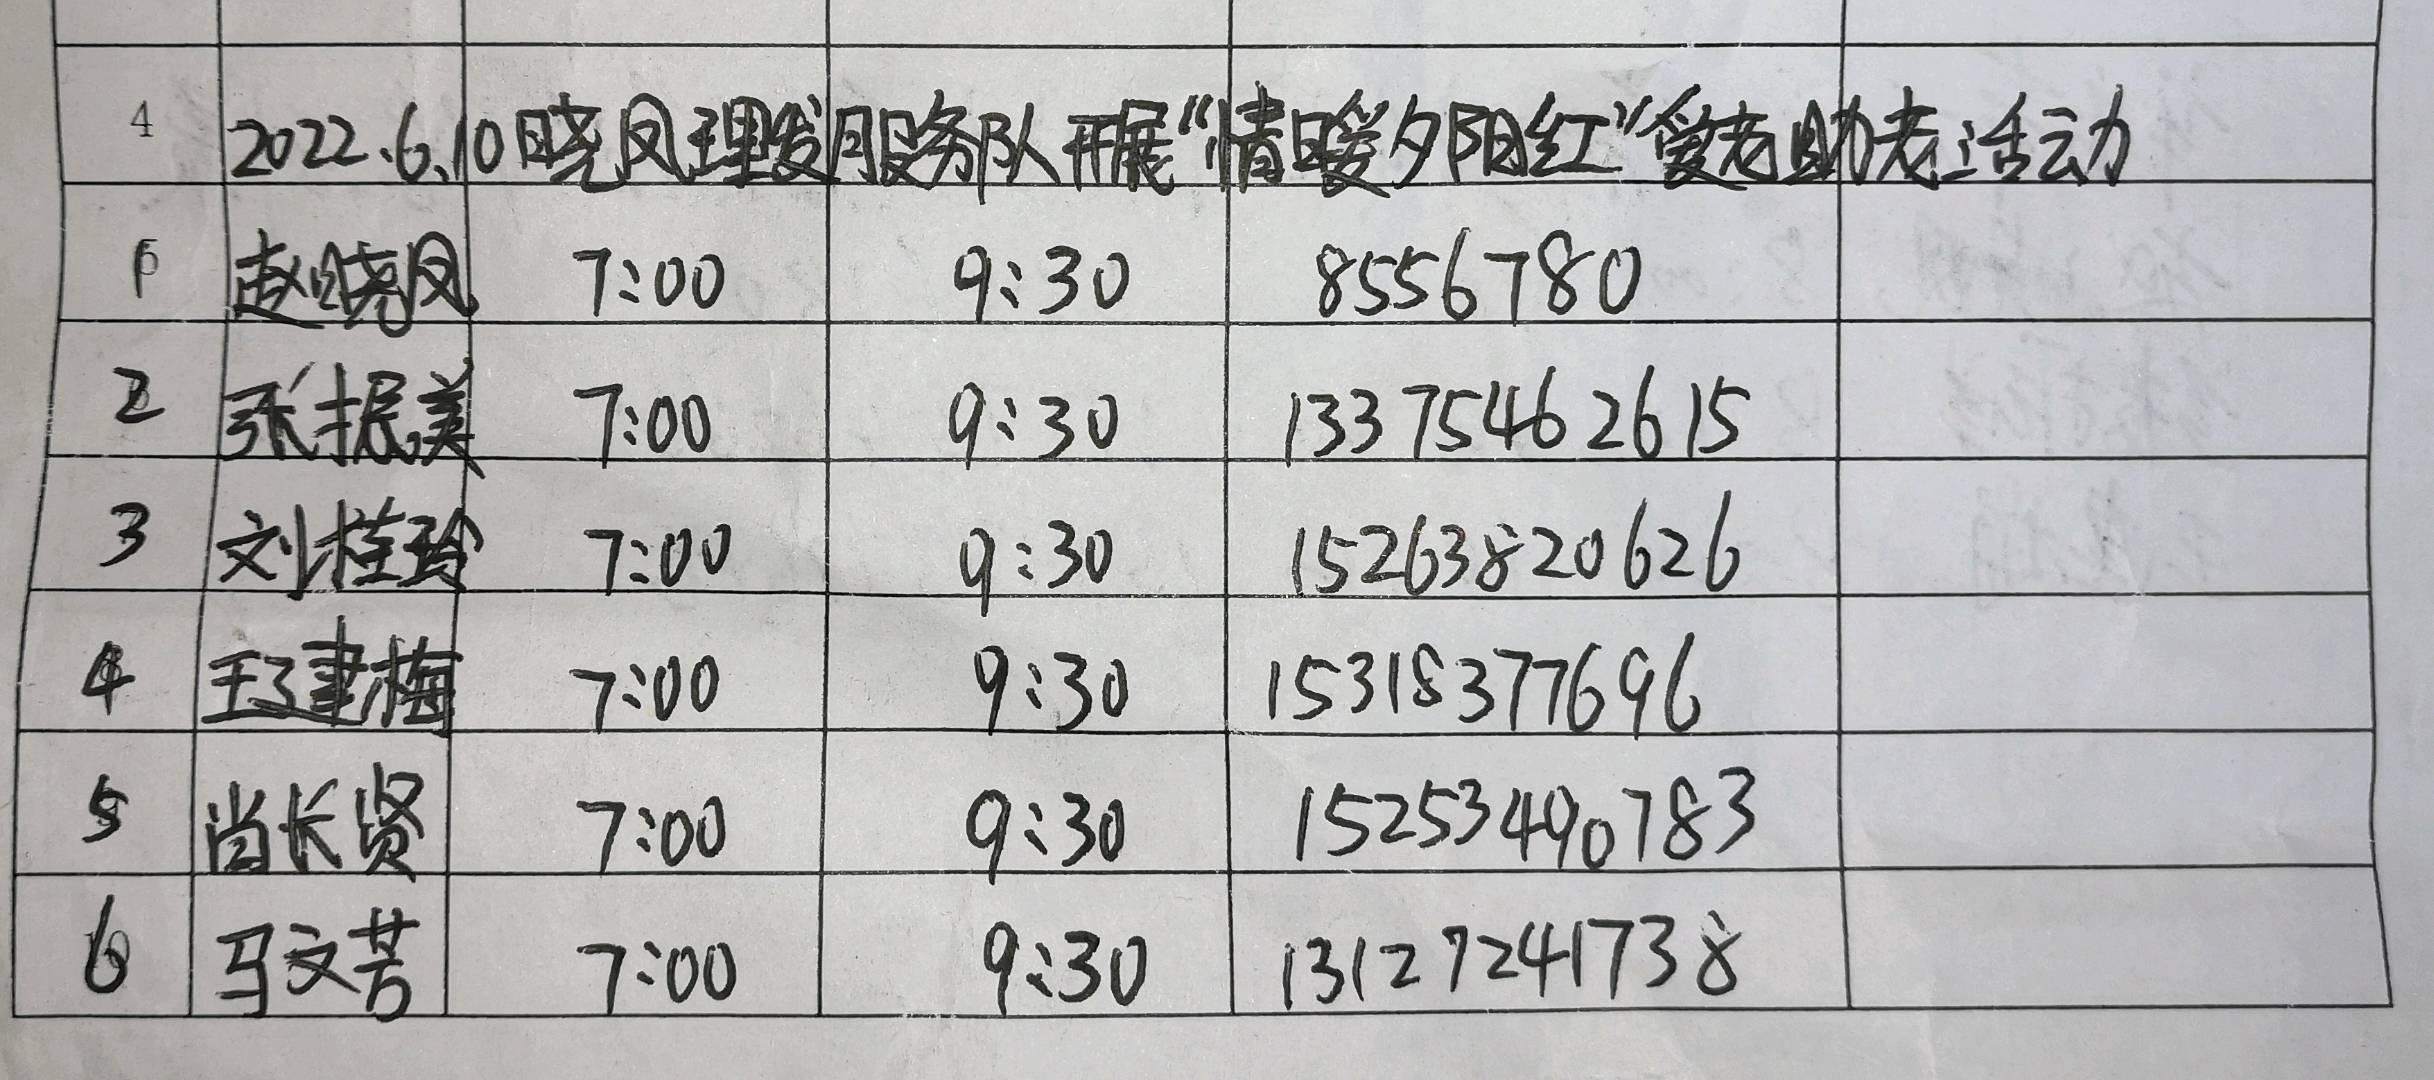 4 2022.6.10晓凤理发服务队开展“情暖夕阳红”爱老助老活动
1 赵晓凤 7:00 9:30 8556780
2 张振美 7:00 9:30 13375462615
3 刘桂玲 7:00 9:30 15263820626
4 王建梅 7:00 9:30 15318377696
5 尚长贤 7:00 9:30 15253490783
6 马文芳 7:00 9:30 13127241738